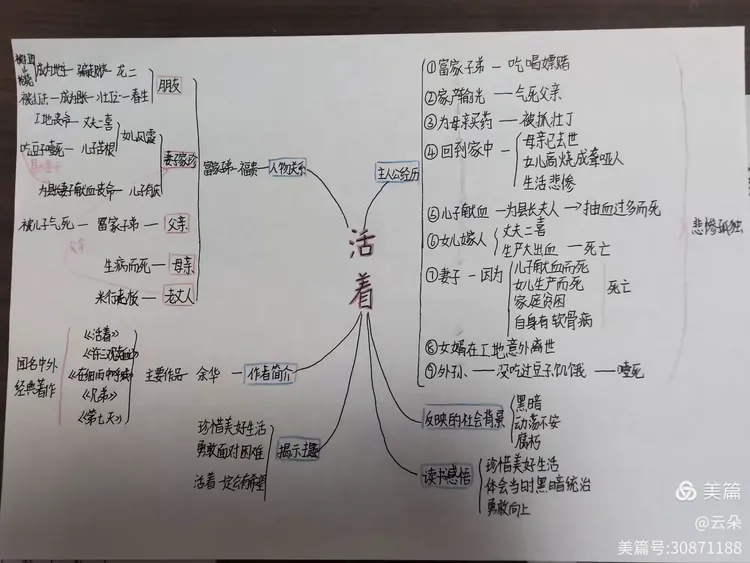 活着
人物关系
富家子弟 — 福贵
朋友
龙二
成为地主
春生
妻子家珍
女儿凤霞
丈夫二喜
工地丧命
儿子苦根
吃豆子噎死
儿子有庆
为县长妻子献血丧命
父亲
富家子弟
被儿子气死
母亲
生病而死
老丈人
米行老板
作者简介
余华
主要作品
《活着》
《在细雨中呼喊》
《兄弟》
《第七天》
闻名中外
经典著作
揭示主题
珍惜美好生活
勇敢面对困难
活着一定会有希望
主人公经历
①富家子弟 — 吃喝嫖赌
②家产输光 — 气死父亲
③为母亲买药 — 被抓壮丁
④回到家中
母亲已去世
女儿高烧成聋哑人
生活悲惨
⑤儿子献血 — 为县长夫人 → 抽血过多而死
⑥女儿嫁人
丈夫二喜
生产大出血 — 死亡
⑦妻子 — 因为
儿子献血而死
女儿生产而死
家庭贫困
自身有软骨病
死亡
⑧女婿在工地意外离世
⑨外孙 — 没吃过豆子饥饿 — 噎死
悲惨孤独
反映的社会背景
黑暗
动荡不安
腐朽
读书感悟
珍惜美好生活
体会当时黑暗统治
勇敢向上
美篇
@云朵
美篇号:30871188